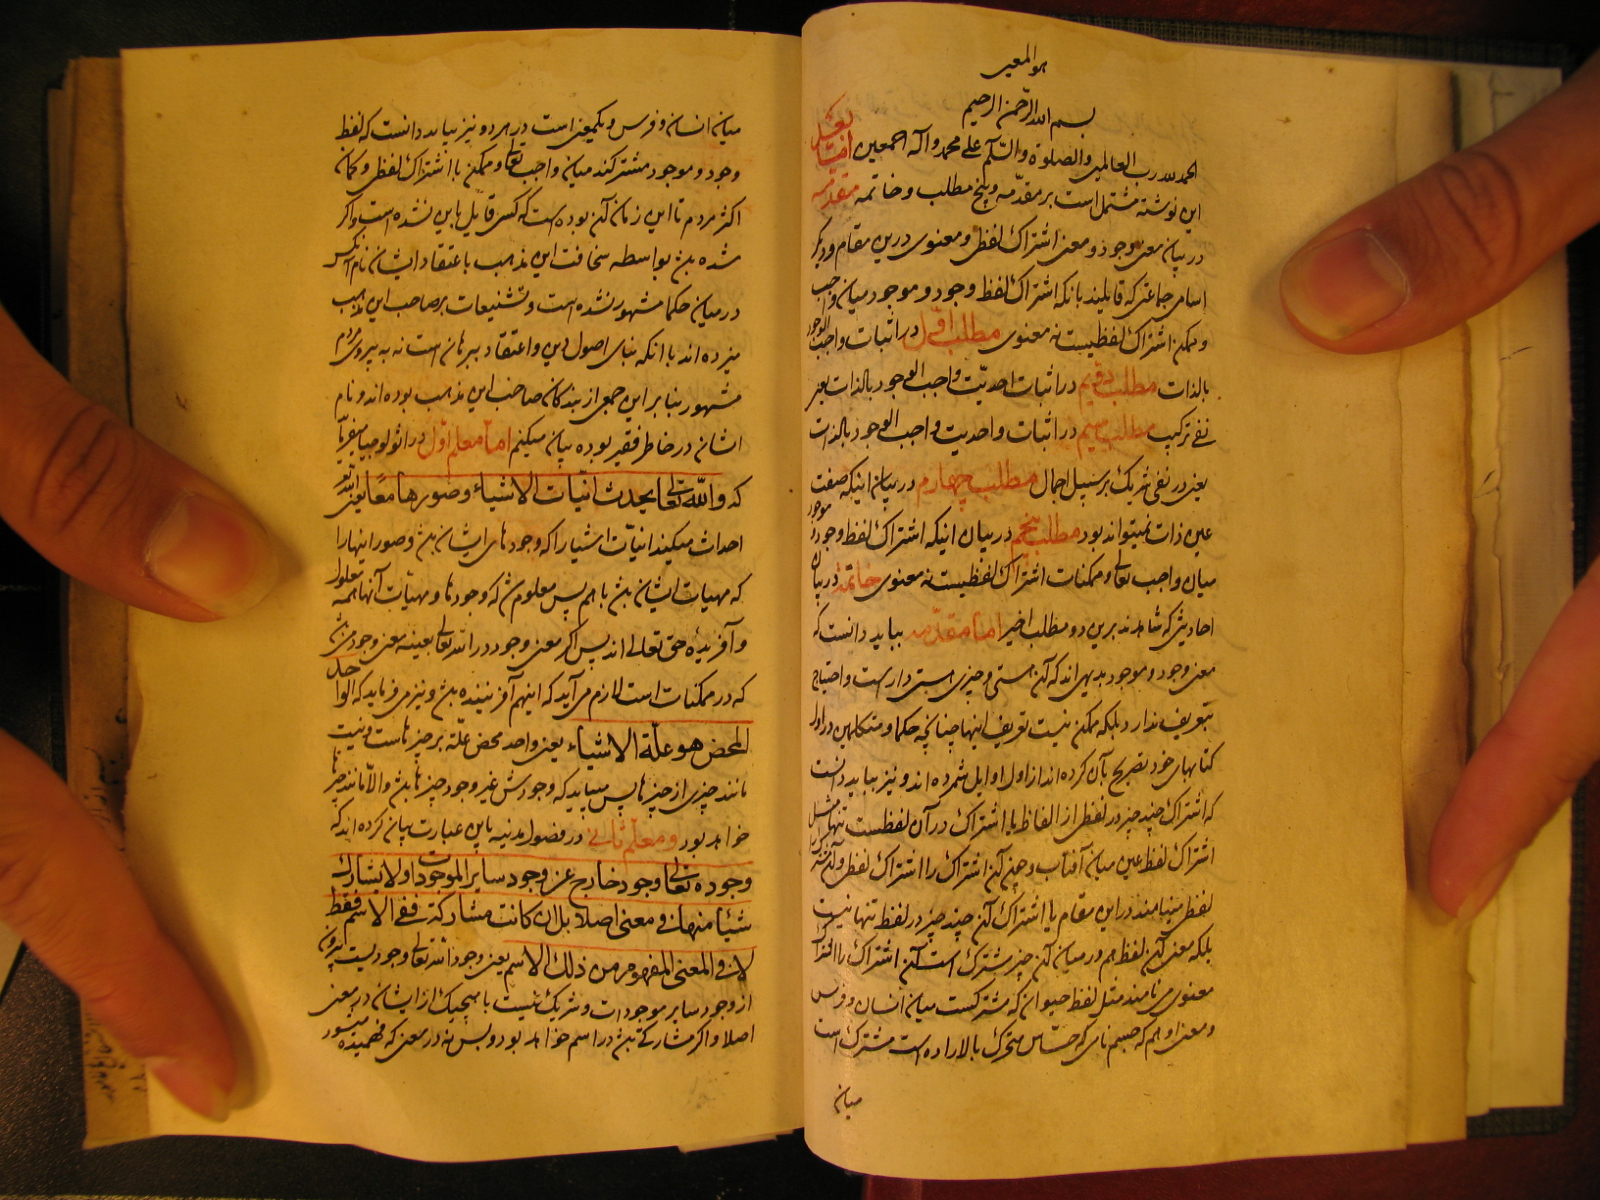 هو المعین
بسم الله الرحمن الرحیم
الحمد لله رب العالمین والصلوة والسلام علی محمد وآله اجمعین
این نوشته مشتمل است بر مقدمه و پنج مطلب و خاتمه مقدمه
در بیان معنی وجود و معنی اشتراک لفظی و معنوی درین مقام و ذکر
اسامی جماعتی که قایلند بانکه اشتراک لفظ وجود و موجود میان واجب
و ممکن اشتراک لفظیست نه معنوی مطلب اول در اثبات واجب الوجود
بالذات مطلب دویم در اثبات احدیت واجب الوجود بالذات یعنی
نفی ترکیب مطلب سیم در اثبات واحدیت واجب الوجود بالذات
یعنی در نفی شریک بر سبیل اجمال مطلب چهارم در بیان اینکه صفت
عین ذات نمیتواند بود مطلب پنجم در بیان اینکه اشتراک لفظ وجود و موجود
میان واجب تعالی و ممکنات اشتراک لفظیست نه معنوی خاتمه در بیان
احادیثی که شاهدند برین دو مطلب اخیر اما مقدمه بباید دانست که
معنی وجود و موجود بدیهی اند که آن هستی و چیزی هستی دار است و احتیاج
بتعریف ندارد بلکه ممکن نیست تعریف اینها چنانچه حکما و متکلمین در اول
کتابهای خود تصریح بآن کرده اند از اول اوایل شمرده اند و نیز بباید دانست
که اشتراک چند چیز در لفظی از الفاظ یا اشتراک در آن لفظیست تنها مثل
اشتراک لفظ عین میان آفتاب و چین آن اشتراک را اشتراک لفظی و آن مشترک را
لفظی مینامند در این مقام یا اشتراک آن چند چیز در لفظ تنها نیست
بلکه معنی آن لفظ هم در میان آن چیز مشترک است آن اشتراک را اشتراک
معنوی می نامند مثل لفظ حیوان که مشترکست میان انسان و فرس
و معنی او هم که جسم نامی که حساس متحرک بالاراده است مشترک است
میان
میان انسان و فرس و یکمعنی است در هر دو و نیز بباید دانست که لفظ
وجود و موجود مشترکند میان واجب تعالی و ممکن باشتراک لفظی و گمان
اکثر مردم تا این زمان آن بوده است که کسی قایل باین نشده است و اگر
شده باشد بواسطه سخافت این مذهب باعتقاد ایشان نام آنکس
در میان حکما مشهور نشده است و تشنیعات بر صاحب این مذهب
میزده اند با انکه بنای اصول دین و اعتقاد ببرهان است نه به پیروی مردم
مشهور بنابر این جمعی از بندکان صاحب این مذهب بوده اند و نام
ایشان در خاطر فقیر بوده بیان میکنم اما معلم اول در اثولوجیا میفرماید
که والله تعالی یحدث انیات الاشیاء وصورها معا یعنی الله تعالی
احداث میکند انیات اشیا را که وجودهای ایشان باشد و صور اینها را
که مهیات ایشان باشد با هم پس معلوم شد که وجودها و مهیات آنها همه معلول
و آفریده حق تعالی اند پس اگر معنی وجود در الله تعالی بعینه معنی وجودی باشد
که در ممکنات است لازم می آید که اینهم آفریننده باشد و نیز می فرماید که الواحد
المحض هو علة الاشیاء یعنی واحد محض علة بر چیزهاست و نیست
مانند چیزی از چیزها پس میباید که وجودش غیر وجود چیزها باشد والا مانند چیزها
خواهد بود و معلم ثانی در فصول مدنیه باین عبارت بیان کرده اند که
وجوده تعالی وجود خارج عن وجود سایر الموجودات ولا یشارک
شیئا منها فی معنی اصلا بل ان کانت مشارکة ففی الاسم فقط
لا فی المعنی المفهوم من ذلک الاسم یعنی وجود الله تعالی وجودیست بیرون
از وجود سایر موجودات و شریک نیست با هیچیک از ایشان در معنی
اصلا و اگر مشارکتی باشد در اسم خواهد بود و بس نه در معنی که فهمیده میشود